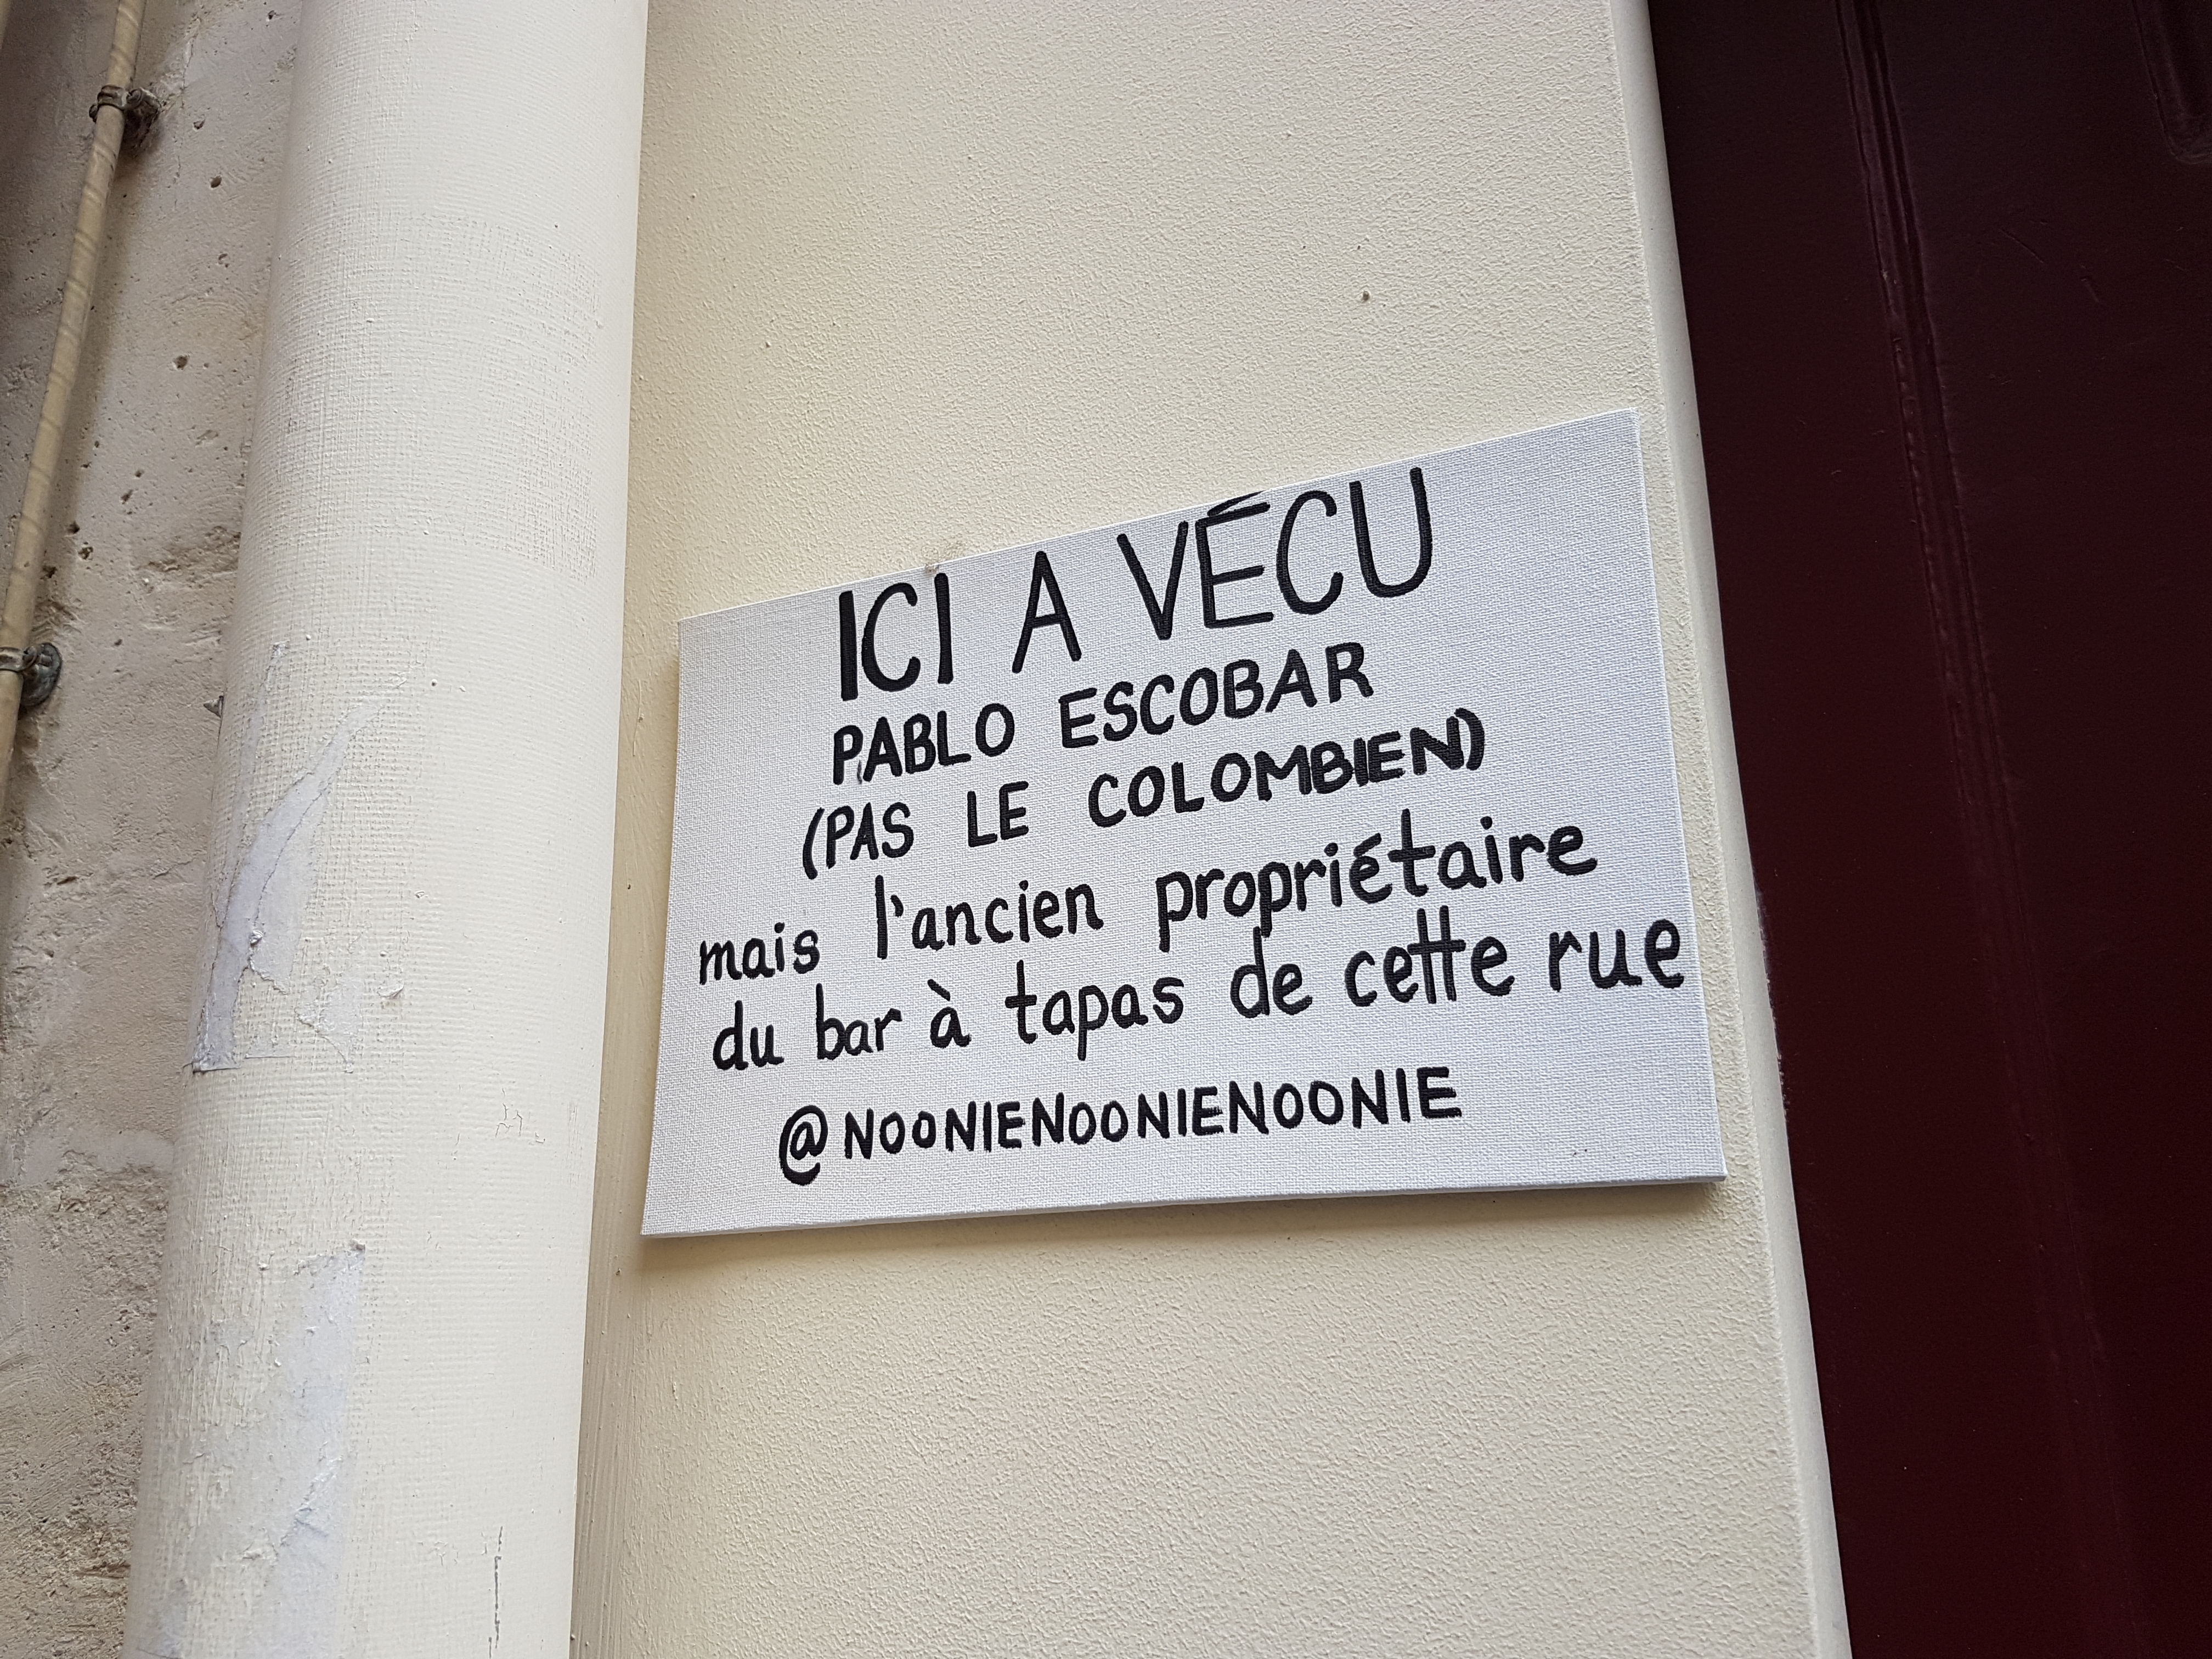 ICI A VÉCU
PABLO ESCOBAR
(PAS LE COLOMBIEN)
mais l'ancien propriétaire
du bar à tapas de cette rue
@NOONIENOONIENOONIE